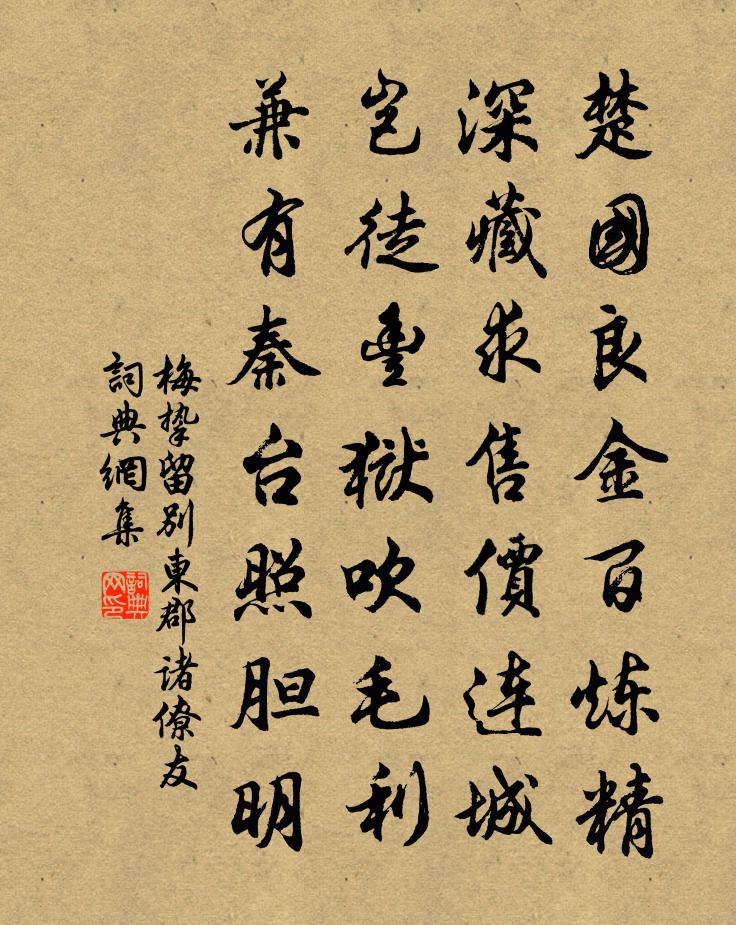 楚國良金百炼精
深藏求售價連城
豈徒豐獄吹毛利
兼有秦台照胆明
梅摯留別東郡诸僚友
詞典網集
詞典网印